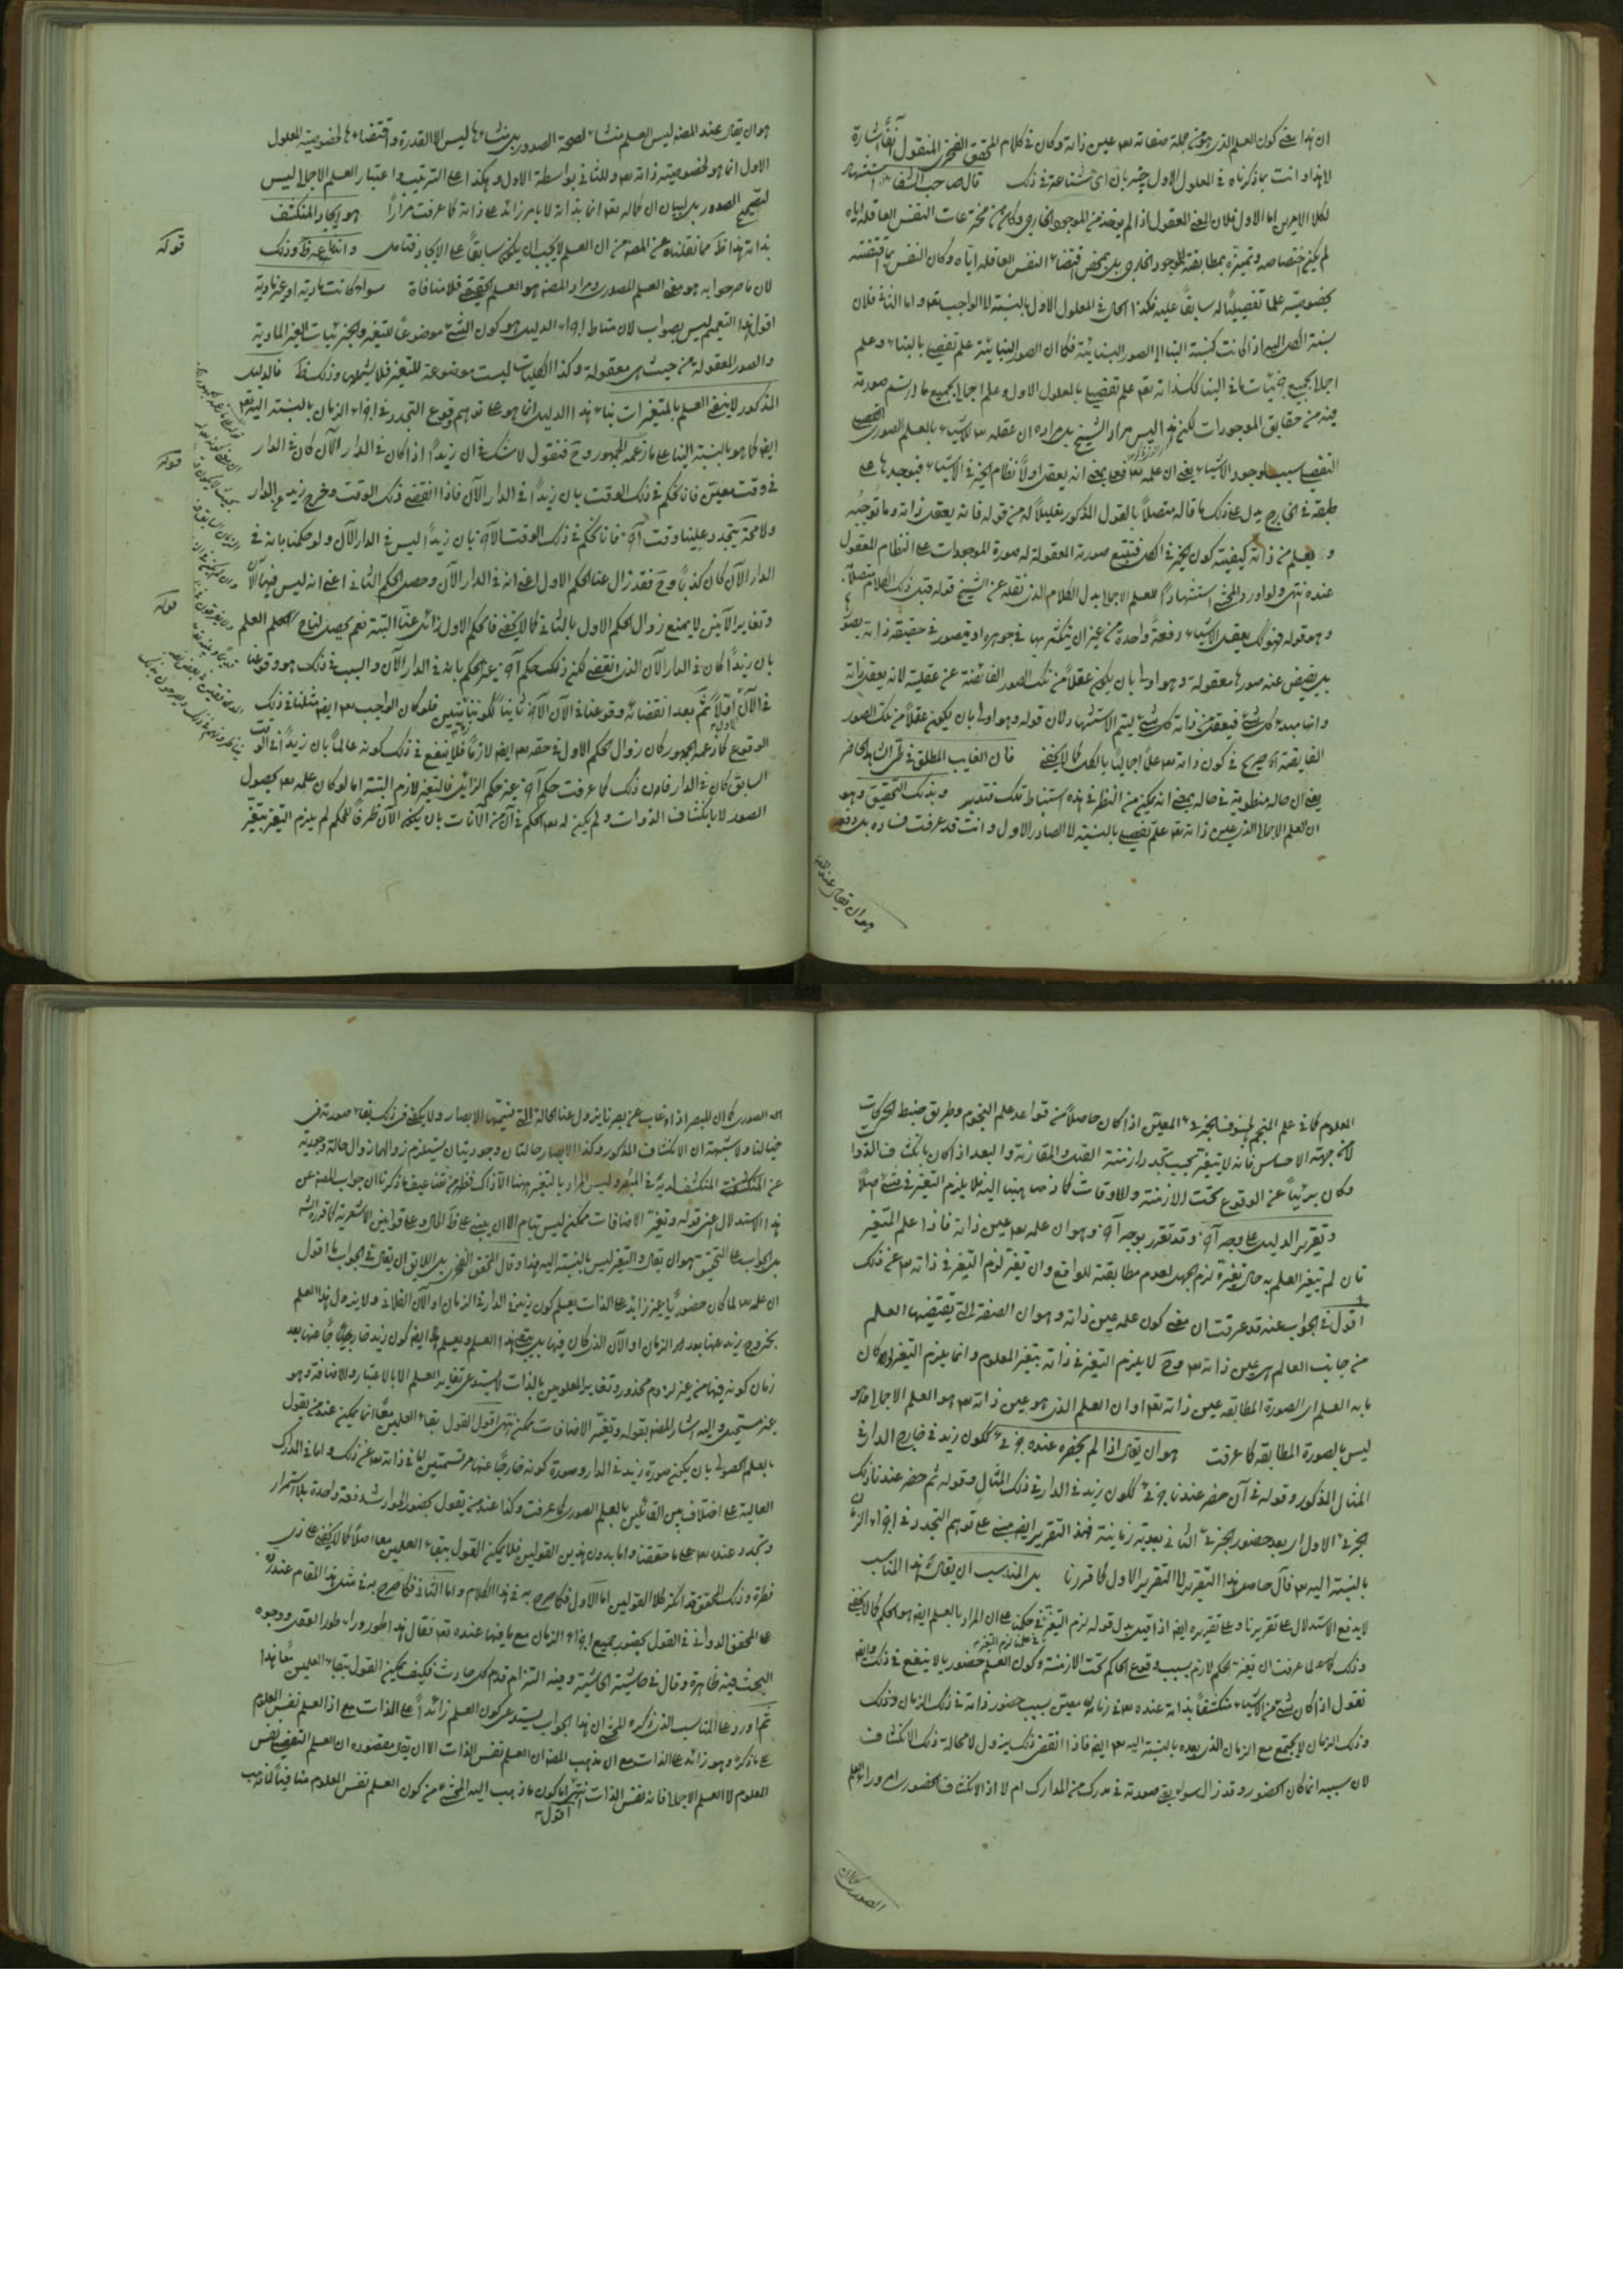 ان هذا معنى كون العلم الذى هو من جملة صفاته تعه عين ذاته وكان فى كلام المحقق الفخرى المنقول آنفا اشارة
لا هذا وانت بما ذكرناه فى المعلول الاول خبير بان اى شناعة فى ذلك قال صاحب الشفاء استشهاد
لكلا الامرين اما الاول فلان المعنى المعقول اذا لم يوخذ من الموجود الخارجى وكان من مخترعات النفس العاقلة اياه
لم يكن اختصاصه وتميزه بمطابقة الموجود الخارجى بل بمحض اقتضاء النفس العاقلة اياه وكان النفس بما اقتضته
بخصوصيته علما تفصيليا له سابقا عليه فكذا الحال فى المعلول الاول بالنسبة لا الواجب تعه واما الثانى فلان
نسبة الكل اليه اذا كانت كنسبة البناء الا الصور البنائية فكما ان الصور البنائية علم تفصيلى بالبناء وعلم
اجمالى بجميع جزئيات ما فى البناء كك ذاته تعه علم تفصيلى بالمعلول الاول وعلم اجمالى بجميع ما ارتسم صورته
فيه من حقايق الموجودات لكن هذا ليس مراد الشيخ بل مراده ان عقله تعه للاشياء بالعلم الصورى
التفصيلى سبب لوجود الاشياء يعنى ان علمه تعه فعلى بمعنى انه يعقل اولا نظام الخير فى الاشياء فيوجدها على
طبقه فى الخارج يدل على ذلك ما قاله متصلا بالقول المذكور تعليلا له من قوله فانه يعقل ذاته وما توجبه
و يعلم من ذاته كيفية كون الخير فى الكل فتتبع صورته المعقولة له صورة الموجودات على النظام المعقول
عنده انتهى ولو اورد المحشى استشهادا للعلم الاجمالى بدل الكلام الذى نقله عن الشيخ قوله قبل ذلك الكلام متصلا
وهو قوله فهو لك يعقل الاشياء دفعة واحدة من غير ان يتكثر بها فى جوهره او يتصور فى حقيقة ذاته بصو
بل يفيض عنه صورها معقولة وهو اولى بان يكون عقلا من تلك الصور الفائضة عن عقليته لانه يعقل ذاته
وانها مبدء كل شئ فيعقل من ذاته كل شئ ليتم الاستشهاد لان قوله وهو اولى بان يكون عقلا من تلك الصور
الفايضة صريح فى كون ذاته تعه علما اجماليا بالكل كما لا يخفى فان الغايب المطلق فى حق الشاهد الحاضر
يعنى ان حاله منطوية فى حاله بمعنى انه يمكن من النظر فى هذه استنباط تلك فتدبر وبذلك التحقيق وهو
ان العلم الاجمالى الذى عين ذاته تعه علم تفصيلى بالنسبة لا الصادر الاول وانت قد عرفت فساده بل دفعه
هو ان يقال عند المصه
هو ان يقال عند المصه ليس العلم منشاء لصحة الصدور بل منشاءها ليس الا القدرة واقتضاءها لخصوصية المعلول
الاول انما هو لخصوصية ذاته تعه وللثانى بواسطة الاول وهكذا على الترتيب واعتبار العلم الاجمالى ليس
لتصحيح الصدور بل لبيان ان كماله تعه انما بذاته لا بامر زائد على ذاته كما عرفت مرارا هو ايجاد المنكشف
بذاته هذا ظ مما نقلناه عن المصه من ان العلم لا يجب ان يكون سابقا على الايجاد فتامل وانتفاءه عنه ظ وذلك
قوله
لان ما صرحوا به هو معنى العلم الصورى ومراد المصه هو العلم الحقيقى فلا منافاة سواء كانت مادية او غير مادية
اقول هذا التعميم ليس بصواب لان مناط اجراء الدليل هو كون الشئ موضوعا للتغير والجزئيات الغير المادية
والصور المعقولة من حيث هى معقولة وكذا الكليات ليست موضوعة للتغير فلا يشملها وذلك ظ فالدليل
المذكور لا ينفى العلم بالمتغيرات بناء هذا الدليل انما هو على توهم وقوع التجدد فى اجزاء الزمان بالنسبة اليه تعه
ايضا كما هو بالنسبة الينا على ما زعمه الجمهور وح فنقول لا شك فى ان زيدا اذا كان فى الدار الآن كان فى الدار
قوله
فى وقت معين فانا نحكم فى ذلك الوقت بان زيدا فى الدار الآن فاذا انقضى ذلك الوقت وخرج زيد عن الدار
ولا محة يتجدد علينا وقت آخر فانا نحكم فى ذلك الوقت الآخر بان زيدا ليس فى الدار الآن ولو حكمنا بانه فى
الدار الآن كان كذبا وح فقد زال عنا الحكم الاول اعنى انه فى الدار الآن وحصل الحكم الثانى اعنى انه ليس فيها الآن
وتغاير الآنين لا يمنع زوال الحكم الاول بالثانى كما لا يخفى فالحكم الاول زائل عنا البتة نعم يحصل لنا ح العلم
قوله
بان زيدا كان فى الدار الآن الذى انقضى لكن ذلك حكم آخر غير الحكم بانه فى الدار الآن والسبب فى ذلك هو وقوعنا
فى الآن اولا ثم بعد انقضائه وقوعنا فى الآن الآخر ثانيا لكوننا زمانيين فلو كان الواجب تعه ايضا مثلنا فى ذلك
الوقوع كما زعمه الجمهور كان زوال الحكم الاول فى حقه تعه ايضا لازما فلا ينفع فى ذلك كونه عالما بان زيدا فى الوقت
السابق كان فى الدار فان ذلك كما عرفت حكم آخر غير حكم الزائل فالتغير لازم البتة اما لو كان علمه تعه بحصول
الصور لا بانكشاف الذوات ولم يكن له تعه الحكم فى آن من الآنات بان يكون الآن ظرفا للحكم لم يلزم التغير بتغير
المعلوم كما فى علم المنجم لخسوف الجزئى المعين اذا كان حاصلا من قواعد علم النجوم وطريق ضبط الحركات
لا من جهة الاحساس فانه لا يتغير بحسب تجدد ازمنة القبل والمقارنة والبعد اذا كان بانكشاف الذوا
وكان بريئا عن الوقوع تحت الازمنة والاوقات كما ذهبنا اليه فلا يلزم التغير فى شئ اصلا
وتقرير الدليل على وجه آخر وقد تقرر بوجه آخر وهو ان علمه تعه عين ذاته فاذا علم المتغير
فان لم يتغير العلم به حال تغيره لزم الجهل لعدم مطابقته للواقع وان تغير لزم التغير فى ذاته تعه عن ذلك
اقول فى الجواب عنه قد عرفت ان معنى كون علمه عين ذاته وهو ان الصفة التى يقتضيها العلم
من جانب العالم هى عين ذاته تعه وح لا يلزم التغير فى ذاته بتغير المعلوم وانما يلزم التغير لو كان
ما به العلم اى الصورة المطابقة عين ذاته تعه او ان العلم الذى هو عين ذاته تعه هو العلم الاجمالى وهو
ليس بالصورة المطابقة كما عرفت هو ان يقال اذا لم يحضره عنده جزئى ككون زيد فى خارج الدار فى
المثال المذكور وقوله فى آن حضر عندنا جزئى ككون زيد فى الدار فى ذلك المثال وقوله ثم حضر عندنا ذلك
الجزئى الاول اى بعد حضور الجزئى الثانى بعدية زمانية فهذا التقرير ايضا مبنى على توهم التجدد فى اجزاء الزمان
بالنسبة اليه تعه فآل حاصل هذا التقرير الى التقرير الاول كما قررنا بل المناسب ان يقال هذا المناسب
لا يدفع الاستدلال على تقريرنا وعلى تقريره ايضا اذا قيل بدل قوله لزم التغير فى علمنا لزم التغير فى حكمنا على ان المراد بالعلم ايضا هو الحكم كما لا يخفى
وذلك لما عرفت ان تغير الحكم لازم بسبب وقوع الحاكم تحت الازمنة وكون العلم حضوريا لا ينفع فى ذلك وايضا
نقول اذا كان شئ من الاشياء منكشفا بذاته عنده تعه فى زمان معين بسبب حضور ذاته فى ذلك الزمان وذلك
وذلك الزمان لا يجتمع مع الزمان الذى بعده بالنسبة اليه تعه ايضا فاذا انقضى ذلك يزول لا محالة ذلك الانكشاف
لان سببه انما كان الحضور وقد زال سواء بقى صورته فى مدرك من المدارك ام لا اذ الانكشاف الحضورى امر وراء العلم
الصورى كما ان
الصورى كما ان المبصر اذا غاب عن بصرنا يزول عنا الحالة التى نسميها الابصار ولا يكفى فى ذلك بقاء صورته فى
خيالنا ولا شبهة ان الانكشاف المذكور وكذا الابصار حالتان وجوديتان يستلزم زوالهما زوال حالة وجودية
عن المنكشف لديه فى المبصر وليس المراد بالتغير ههنا الا ذاك فظهر من تضاعيف ما ذكرنا ان جواب المصه عن
هذا الاستدلال اعنى قوله وتغير الاضافات ممكن ليس بتمام الا ان يبنى على ظ الحال وعلى قوانين الاشعرية كما قرره الشه
بل الجواب على التحقيق هو ان يقال والتغير ليس بالنسبة اليه هذا وقال المحقق الفخرى بل اللايق ان يقال فى الجواب ها اقول
ان علمه تعه لما كان حضوريا غير زائد على الذات يعلم كون زيد فى الدار فى الزمان او الآن الفلانى ولا يزول هذا العلم
بخروج زيد عنها بعد الزمان او الآن الذى كان فيها بل يبقى هذا العلم ويعلم ايضا كون زيد خارجا عنها بعد
زمان كونه فيها من غير لزوم محذور وتغاير المعلومين بالذات لا يستدعى تغاير العلم الا بالاعتبار والاضافة وهو
غير مستحيل واليه اشار المصه بقوله وتغير الاضافات ممكن انتهى اقول القول بقاء العلمين معا انما يمكن عند من يقول
بالعلم الحصولى بان يكون صورة زيد فى الدار وصورة كونه خارجا عنها مرتسمتين اما فى ذاته تعه عن ذلك واما فى المدارك
العالية على اختلاف بين القائلين بالعلم الصورى كما عرفت وكذا عند من يقول بحضور الحوادث دفعة واحدة بلا استمرار
وتجدد عنده تعه على ما حققنا واما بدون هذين القولين فلا يمكن القول ببقاء العلمين معا اصلا كما لا يخفى على ذى
فطرة وذلك المحقق قد انكر كلا القولين اما الاول فكما صرح به فى هذا الكلام واما الثانى فكما صرح به فى مثل هذا المقام عند رده
على المحقق الدوانى فى القول بحضور جميع اجزاء الزمان مع ما فيها عنده تعه فقال هذا طور وراء طور العقل ووجوه
البحث فيه ظاهرة وقال فى حاشية الحاشية وفيه التزام قدم كل حادث فكيف يمكن القول ببقاء العلمين معا هذا
ثم اورد على المناسب الذى ذكره المحشى ان هذا الجواب يستدعى كون العلم زائدا على الذات مع اذ العلم نفس المعلوم
على ما ذكره وهو زائد على الذات مع ان مذهب المصه ان العلم نفس الذات الا ان يقال مقصوده ان العلم التفصيلى نفس
المعلوم لا العلم الاجمالى فانه نفس الذات انتهى اقول اما كون ما ذهب اليه المحشى من كون العلم نفس المعلوم منافيا لمذهب